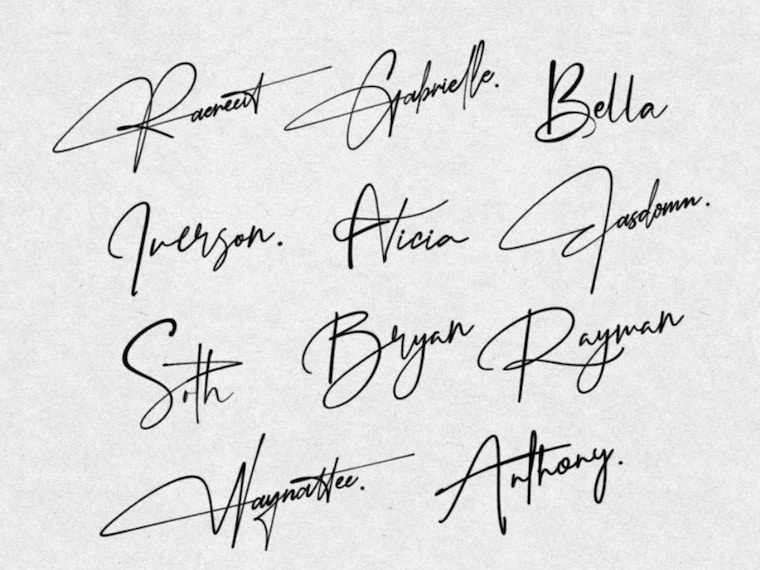 Raereet Gabrielle. Bella
Iverson. Alicia Jasdomn.
Seth Bryan Rayman
Waynattee. Anthony.